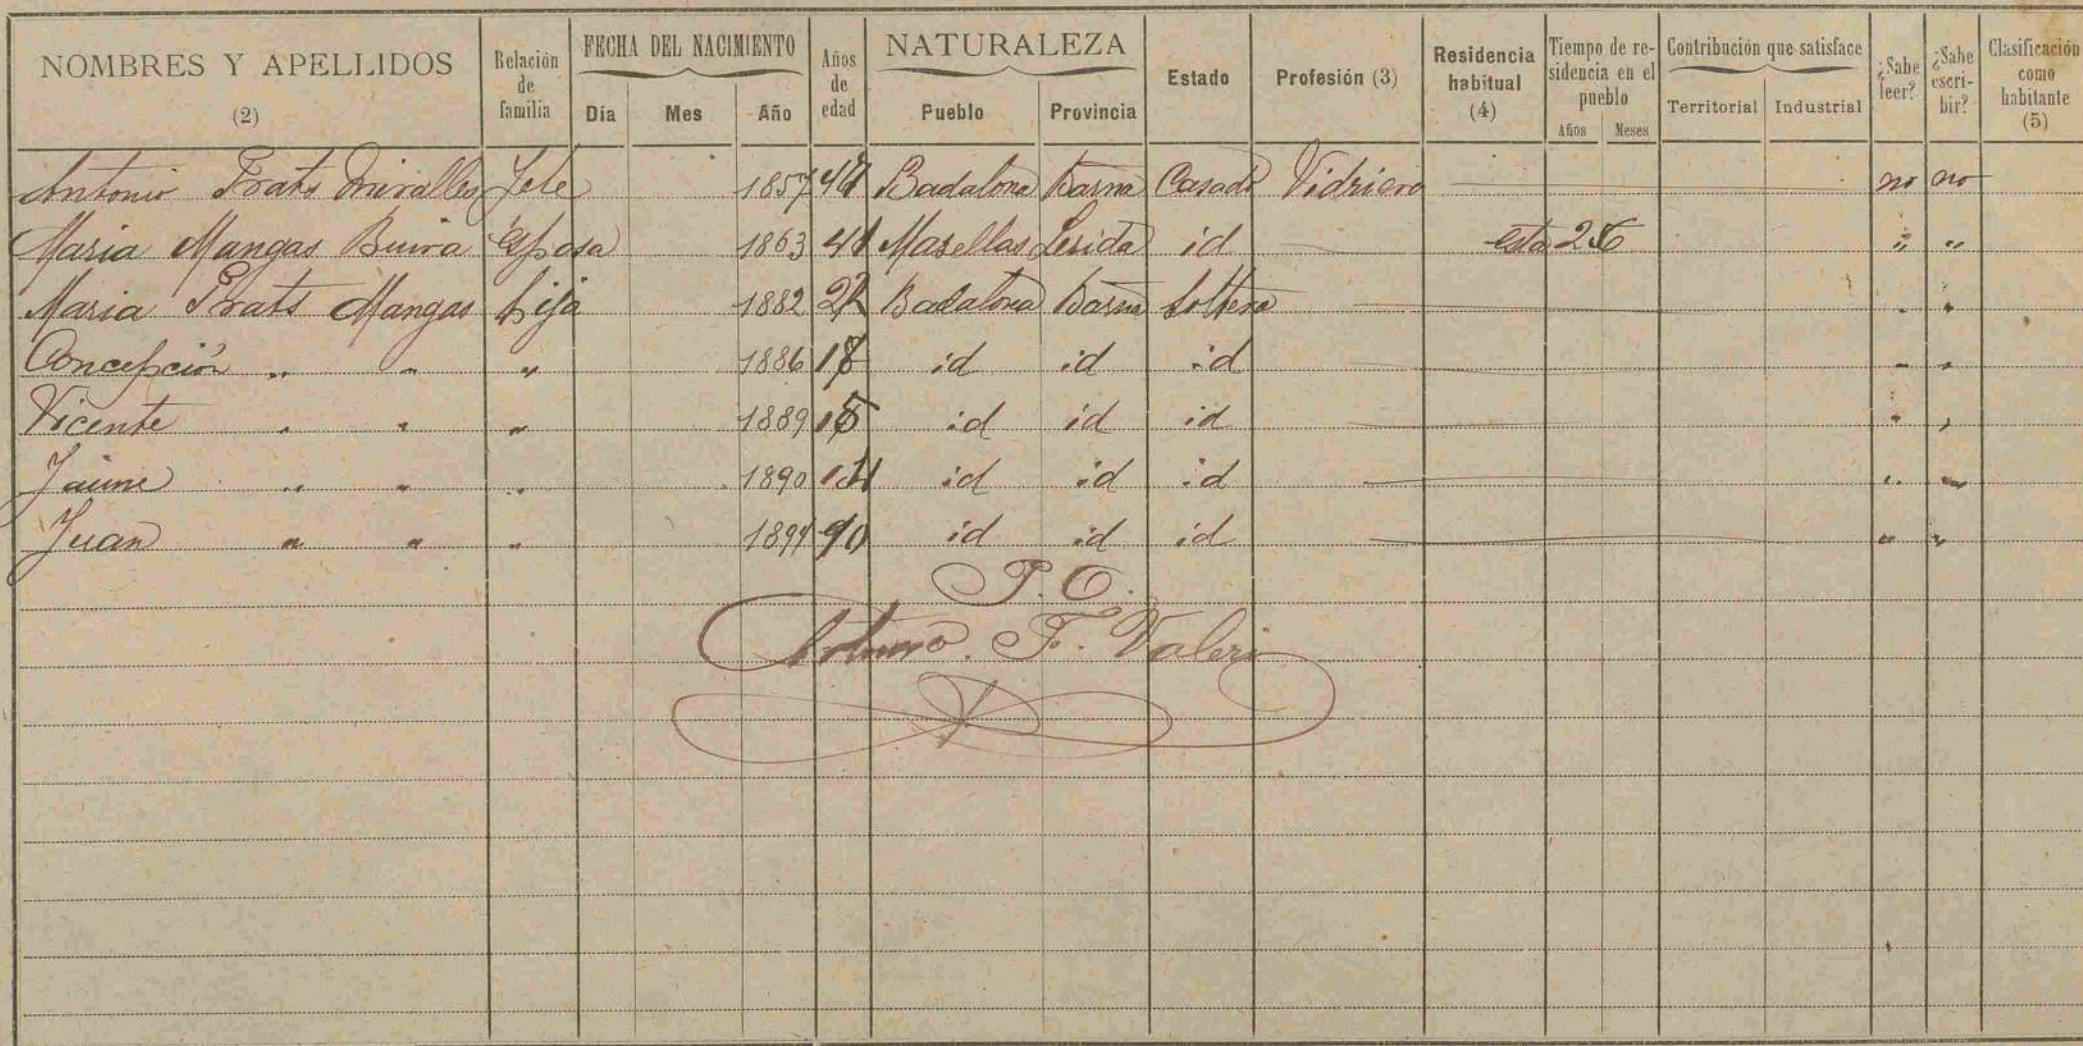 NOMBRES Y APELLIDOS (2) Relación de familia FECHA DEL NACIMIENTO Día Mes Año Años de edad NATURALEZA Pueblo Provincia Estado Profesión (3) Residencia habitual (4) Tiempo de residencia en el pueblo Años Meses Contribución que satisface Territorial Industrial ¿Sabe leer? ¿Sabe escribir? Clasificación como habitante (5)
Antonio Prats Miralles Jefe 1857 Badalona Barna Casado Vidriero no no
Maria Mangas Buira Esposa 1863 41 Lerida id esta " "
Maria Prats Mangas hija 1882 Badalona Barna Soltera " "
Concepción " " " 1886 18 id id id " "
Vicente " " " 1889 15 id id id " "
Jaime " " " 1890 14 id id id " "
Juan " " " id id id " "
P. O.
Arturo F. Valeri